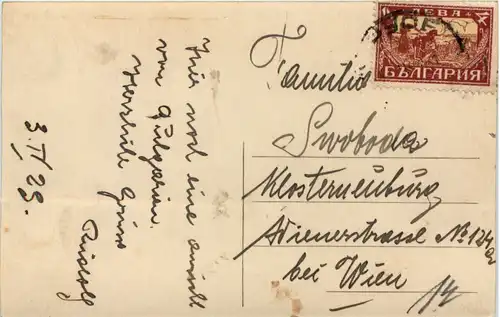 3. II 29.
Hier noch eine Ansicht
von Bulgarien.
Herzliche Grüsse
Rudolf
1 ЛЕВА
БЪЛГАРИЯ
Familie
Swoboda
Klosterneuburg
Wienerstrasse No 124
bei Wien